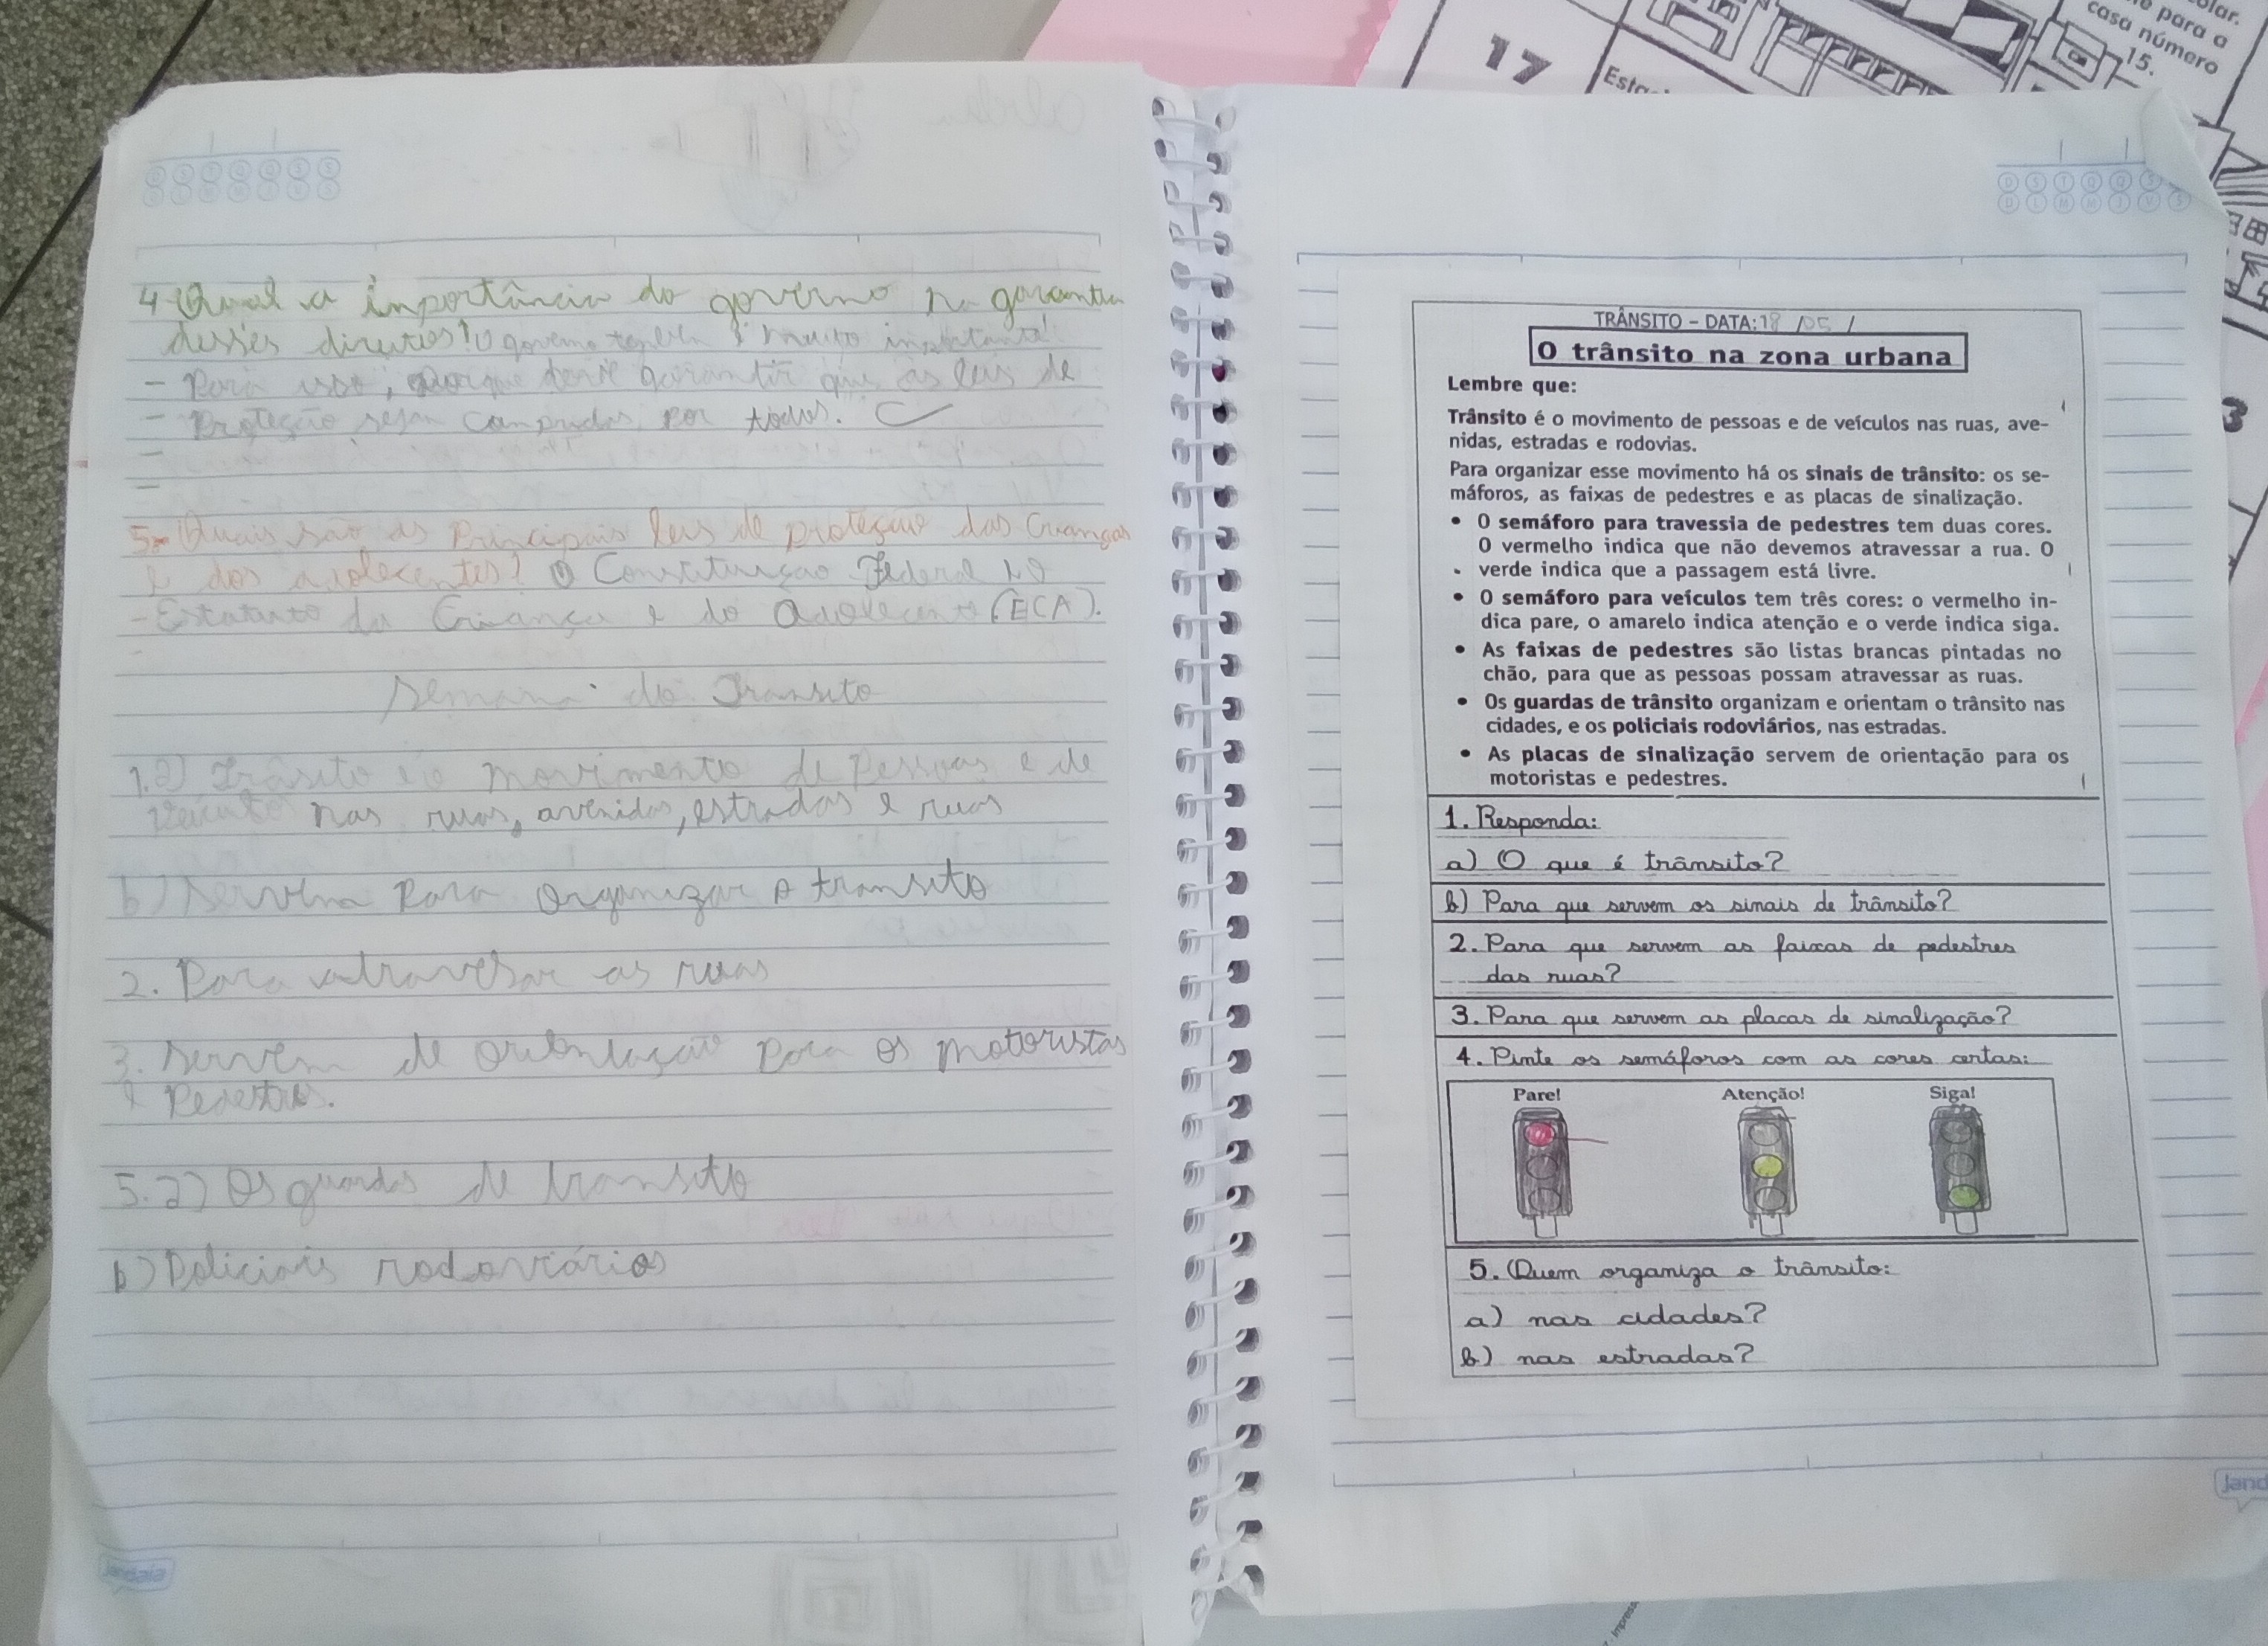 4-Qual a importância do governo na garantia
desses direitos? O governo também é muito importante!
- Para isso, porque deve garantir que as leis de
- Proteção sejam compridas por todos.
5- Quais são as Principais leis de proteção das Crianças
e dos adolecentes? O Constituição Federal
- Estatuto da Criança e do Adolecente (ECA).
Semana do Transito
1.a) Trânsito é o movimento de Pessoas e de
nas ruas, avenidas, estradas e ruas
b) Servem Para Organizar o transito
2. Para atravesar as ruas
3. Servem de orientação para os motoristas
e Pedestres.
5.a) Os guardas de transito
b) Policiais rodoviários
jandaia
TRÂNSITO – DATA: 18 /05 /
O trânsito na zona urbana
Lembre que:
Trânsito é o movimento de pessoas e de veículos nas ruas, ave-
nidas, estradas e rodovias.
Para organizar esse movimento há os sinais de trânsito: os se-
máforos, as faixas de pedestres e as placas de sinalização.
• O semáforo para travessia de pedestres tem duas cores.
O vermelho indica que não devemos atravessar a rua. O
verde indica que a passagem está livre.
• O semáforo para veículos tem três cores: o vermelho in-
dica pare, o amarelo indica atenção e o verde indica siga.
• As faixas de pedestres são listas brancas pintadas no
chão, para que as pessoas possam atravessar as ruas.
• Os guardas de trânsito organizam e orientam o trânsito nas
cidades, e os policiais rodoviários, nas estradas.
• As placas de sinalização servem de orientação para os
motoristas e pedestres.
1. Responda:
a) O que é trânsito?
b) Para que servem os sinais de trânsito?
2. Para que servem as faixas de pedestres
das ruas?
3. Para que servem as placas de sinalização?
4. Pinte os semáforos com as cores certas:
Pare! Atenção! Siga!
5. Quem organiza o trânsito:
a) nas cidades?
b) nas estradas?
17
para a
casa número
15.
3